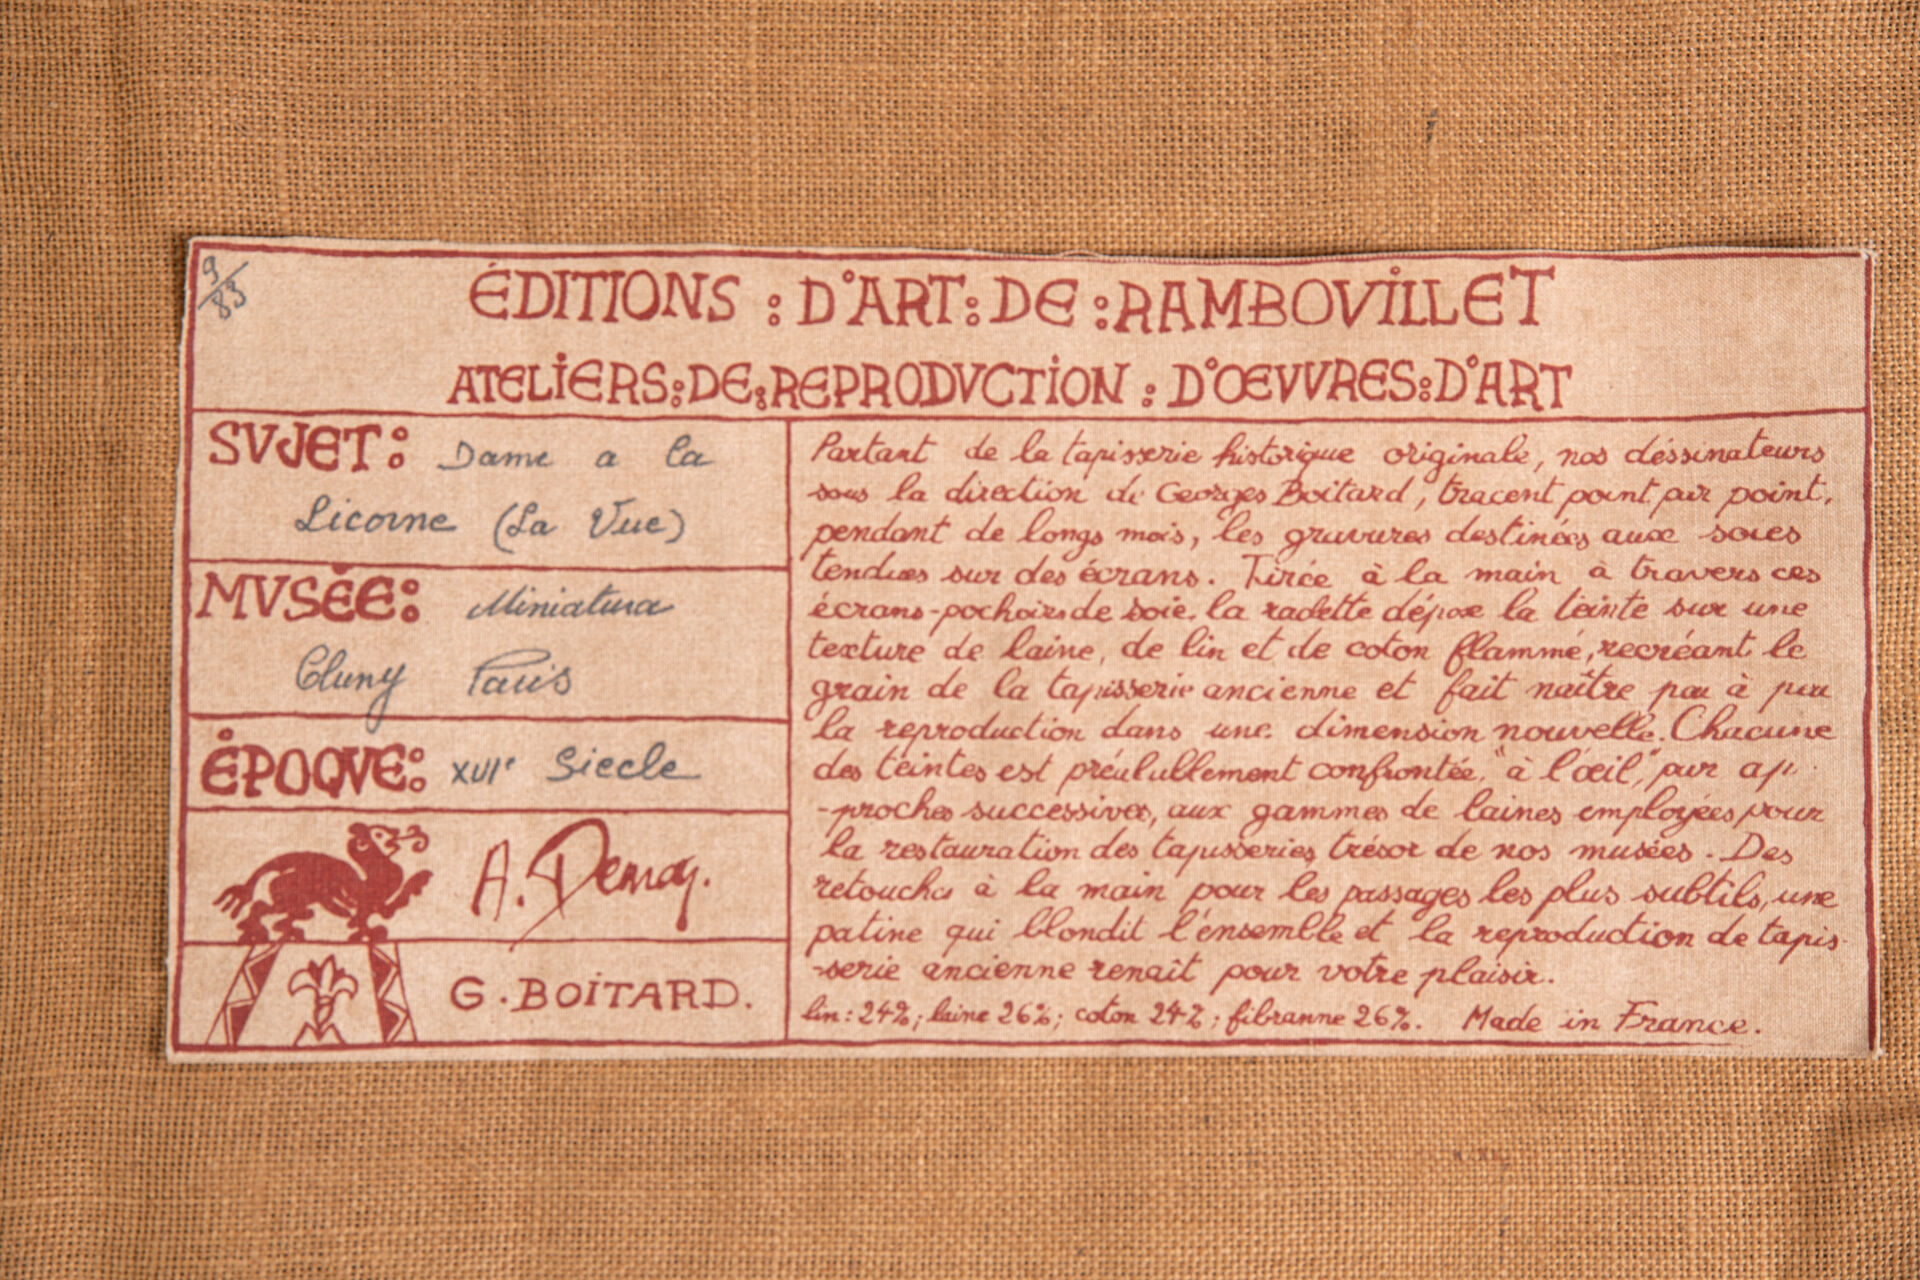 9/83
ÉDITIONS : D'ART : DE : RAMBOVILLET
ATELIERS : DE : REPRODVCTION : D'ŒVVRES : D'ART
SVJET : Dame a la
Licorne (La Vue)
MVSÉE : Miniatura
Cluny Paris
ÉPOQVE : XVIe Siecle
A.
G. BOITARD.
Partant de la tapisserie historique originale, nos déssinateurs
sous la direction de Georges Boitard, tracent point par point,
pendant de longs mois, les gravures destinées aux soies
tendues sur des écrans. Tirée à la main à travers ces
écrans-pochoirs de soie, la raclette dépose la teinte sur une
texture de laine, de lin et de coton flammé, recréant le
grain de la tapisserie ancienne et fait naître peu à peu
la reproduction dans une dimension nouvelle. Chacune
des teintes est préalablement confrontée, "à l'œil", par ap-
-proches successives, aux gammes de laines employées pour
la restauration des tapisseries trésor de nos musées. Des
retouches à la main pour les passages les plus subtils, une
patine qui blondit l'ensemble et la reproduction de tapis-
-serie ancienne renaît pour votre plaisir.
lin : 24% ; laine 26% ; coton 24% ; fibranne 26%. Made in France.